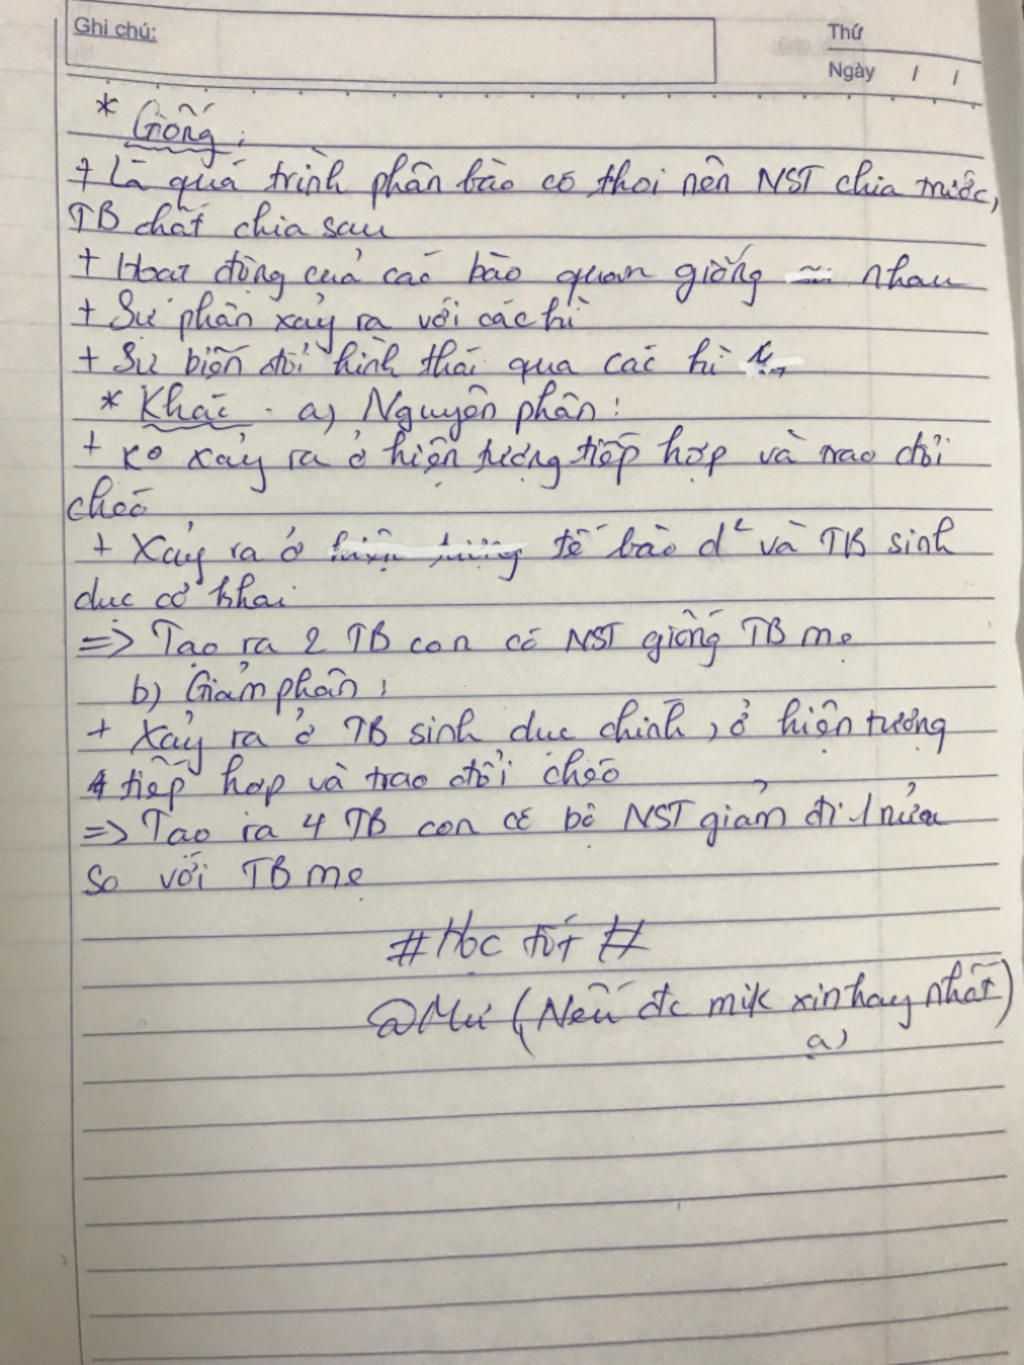 Ghi chú:
Thứ
Ngày / /
* Giống:
+ Là quá trình phân bào có thoi nên NST chia trước,
TB chất chia sau
+ Hoạt động của các bào quan giống nhau
+ Sự phân xảy ra với các kì
+ Sự biến đổi hình thái qua các kì
* Khác. a) Nguyên phân:
+ Ko xảy ra ở hiện tượng tiếp hợp và trao đổi
chéo
+ Xảy ra ở tế bào d² và TB sinh
dục cơ khai
=> Tạo ra 2 TB con có NST giống TB mẹ
b) Giảm phân:
+ Xảy ra ở TB sinh dục chính, ở hiện tượng
tiếp hợp và trao đổi chéo
=> Tạo ra 4 TB con có bộ NST giảm đi 1 nửa
so với TB mẹ
# Học tốt #
@Mư (Nếu đc mik xin hay nhất)
ạ)